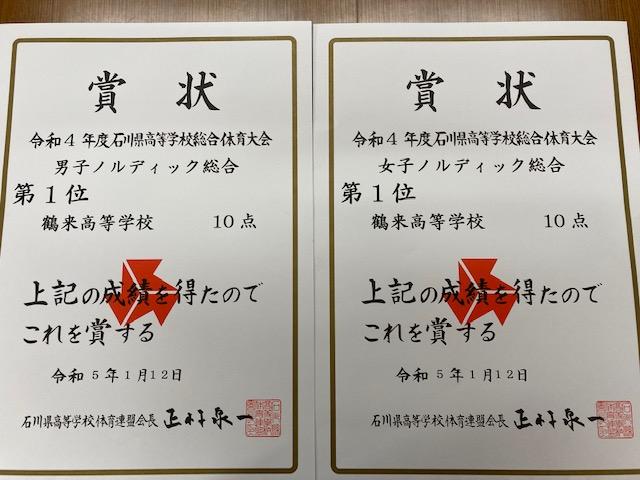 賞状
令和4年度石川県高等学校総合体育大会
男子ノルディック総合
第1位
鶴来高等学校 10点
上記の成績を得たので
これを賞する
令和5年1月12日
石川県高等学校体育連盟会長
賞状
令和4年度石川県高等学校総合体育大会
女子ノルディック総合
第1位
鶴来高等学校 10点
上記の成績を得たので
これを賞する
令和5年1月12日
石川県高等学校体育連盟会長